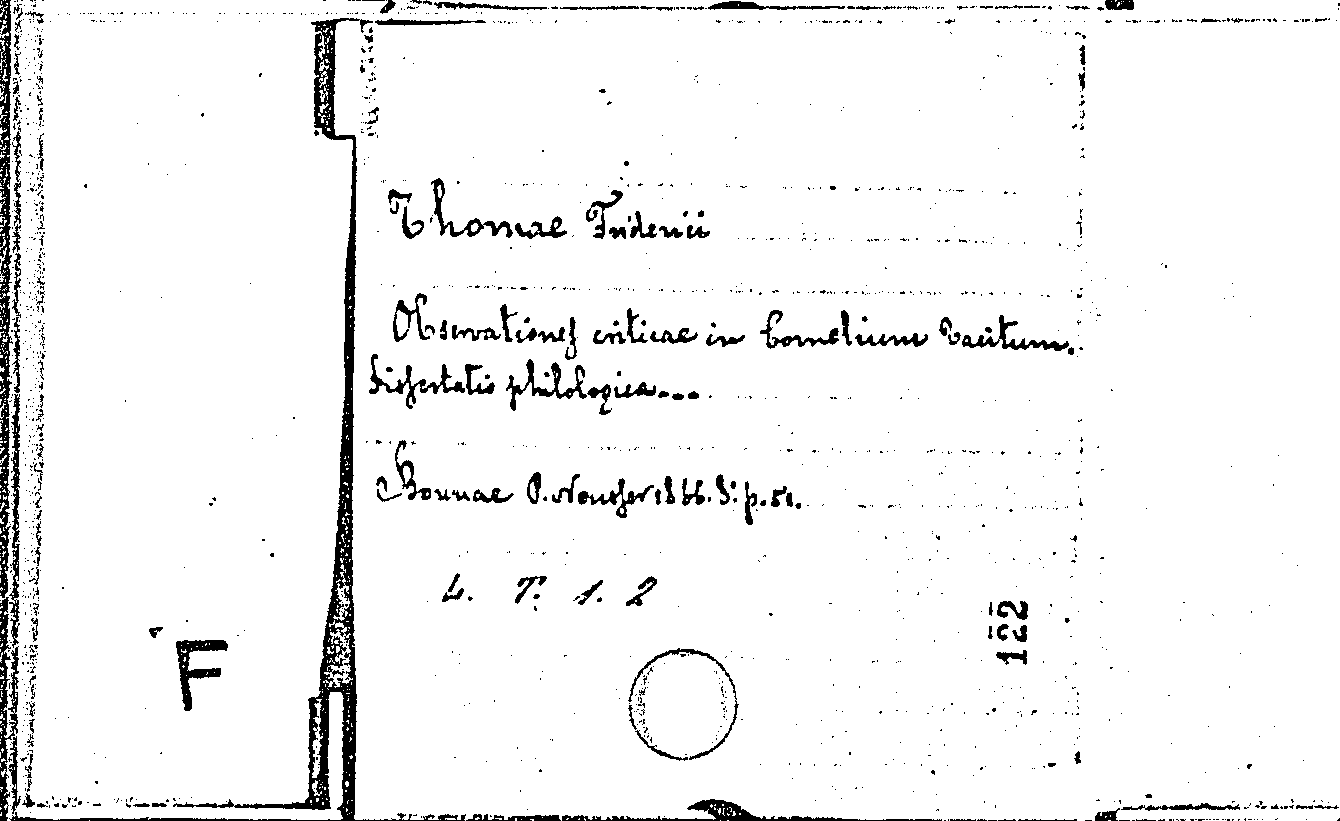 Thomae Friderici
Observationes criticae in Cornelium Tacitum.
Dissertatio philologica...
Bonnae P. Neusser 1866. 8°. p. 51.
L. T. 1. 2
122
F